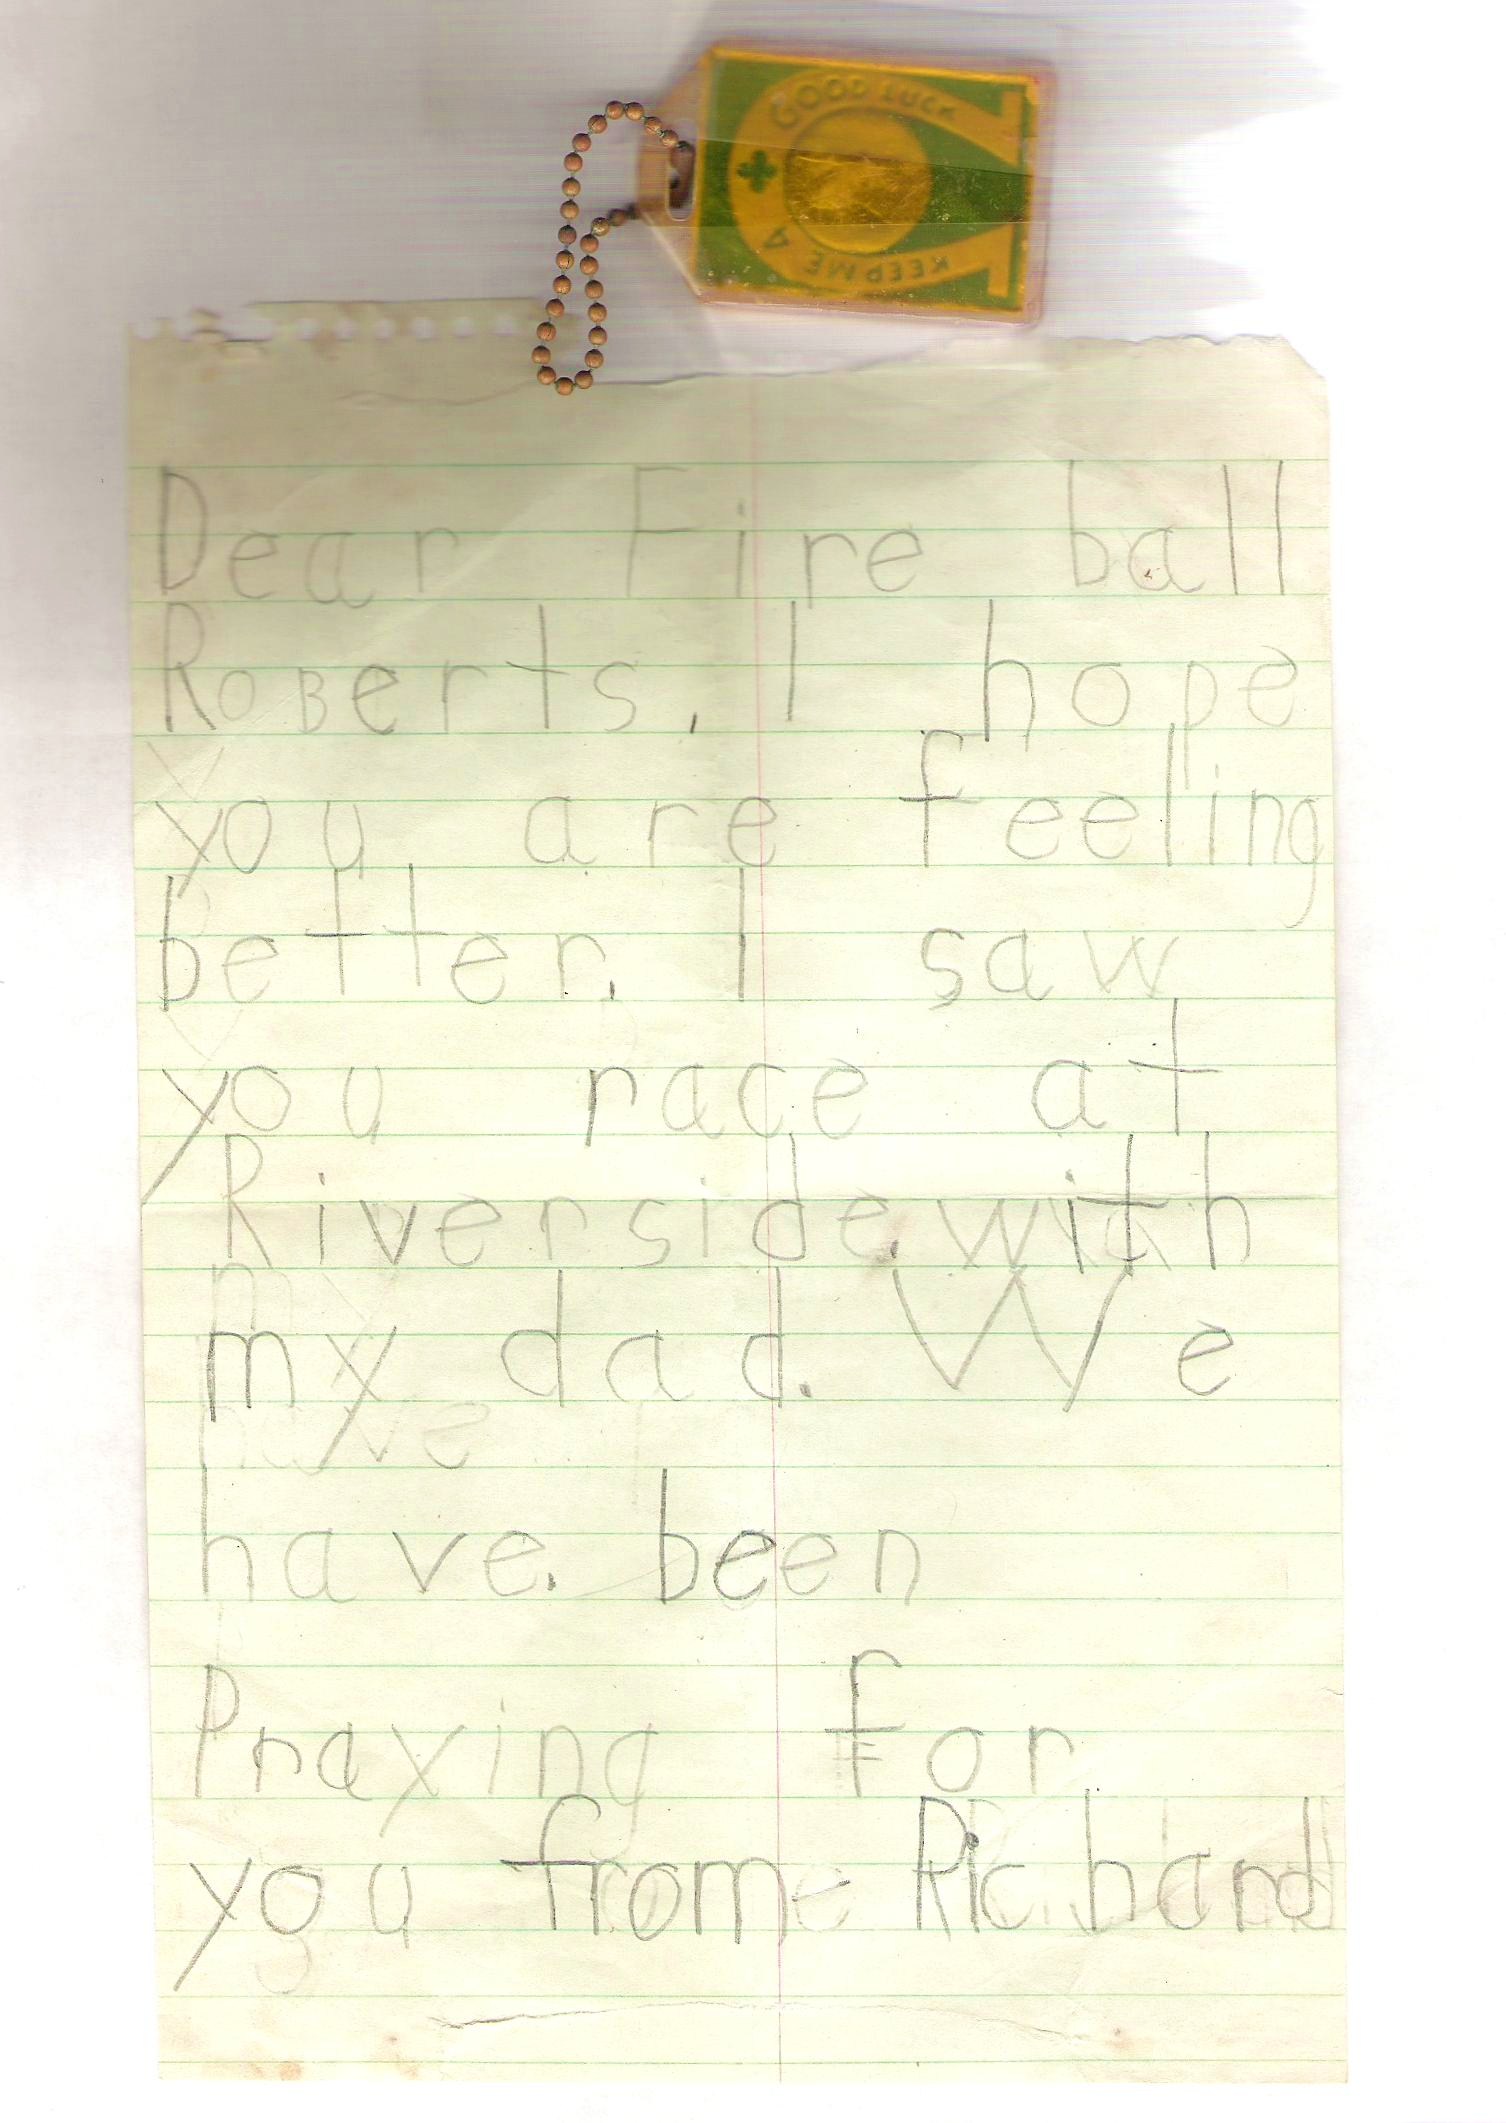 KEEP ME A GOOD LUCK
Dear Fire ball
RoBerts, I hope
you are feeling
better. I saw
you race at
Riverside. with
my dad. We
have. been
Praying for
you from Richard